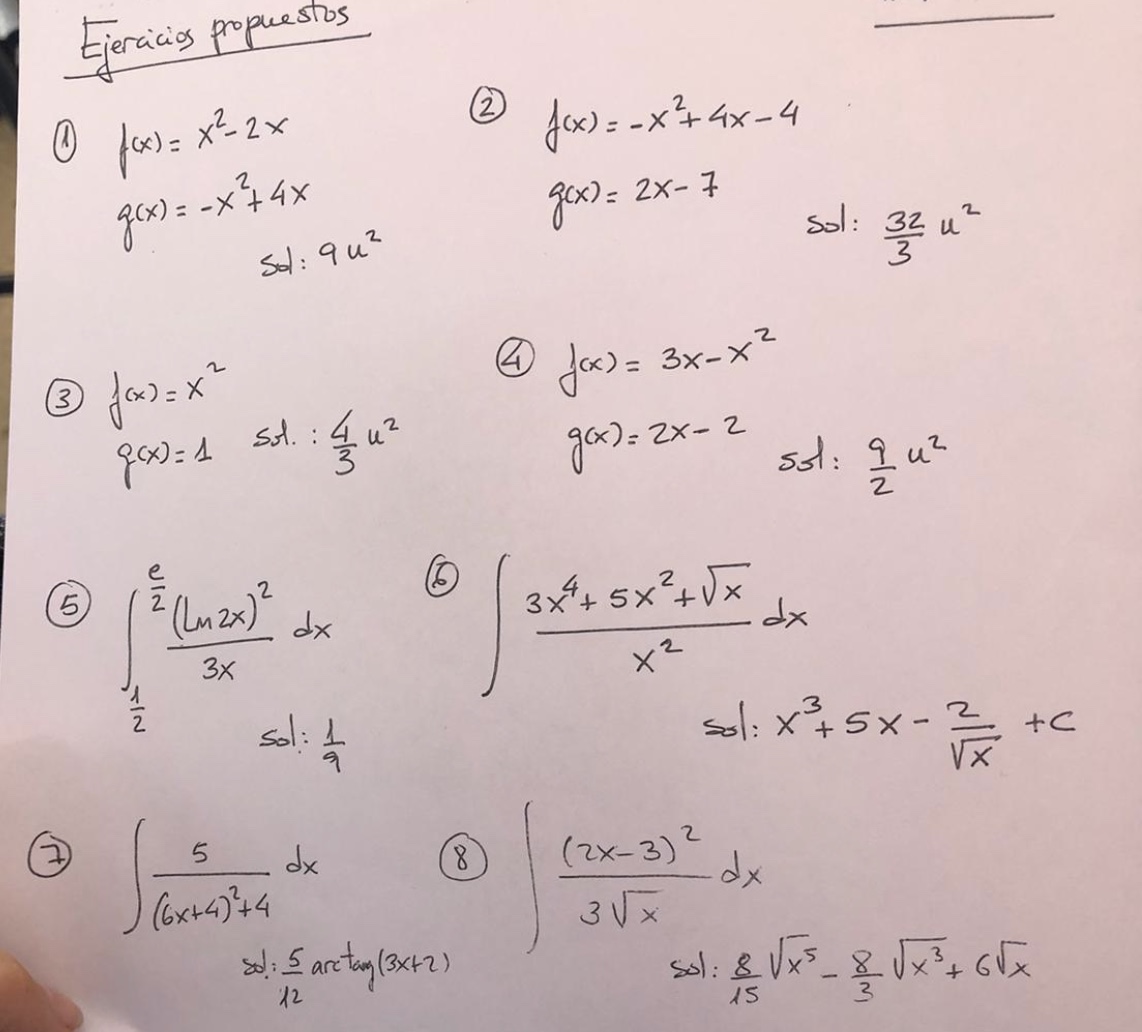 Ejercicios propuestos
① f(x) = x² - 2x
g(x) = -x² + 4x
Sol: 9 u²
② f(x) = -x² + 4x - 4
g(x) = 2x - 7
Sol: 32/3 u²
③ f(x) = x²
g(x) = 1 Sol. : 4/3 u²
④ f(x) = 3x - x²
g(x) = 2x - 2
Sol: 9/2 u²
⑤ ∫_{1/2}^{e/2} (Ln 2x)²/3x dx
Sol: 1/9
⑥ ∫ (3x⁴ + 5x² + √x)/x² dx
Sol: x³ + 5x - 2/√x + C
⑦ ∫ 5/((6x+4)² + 4) dx
Sol: 5/12 arctang(3x+2)
⑧ ∫ (2x-3)²/(3√x) dx
Sol: 8/15 √x⁵ - 8/3 √x³ + 6√x